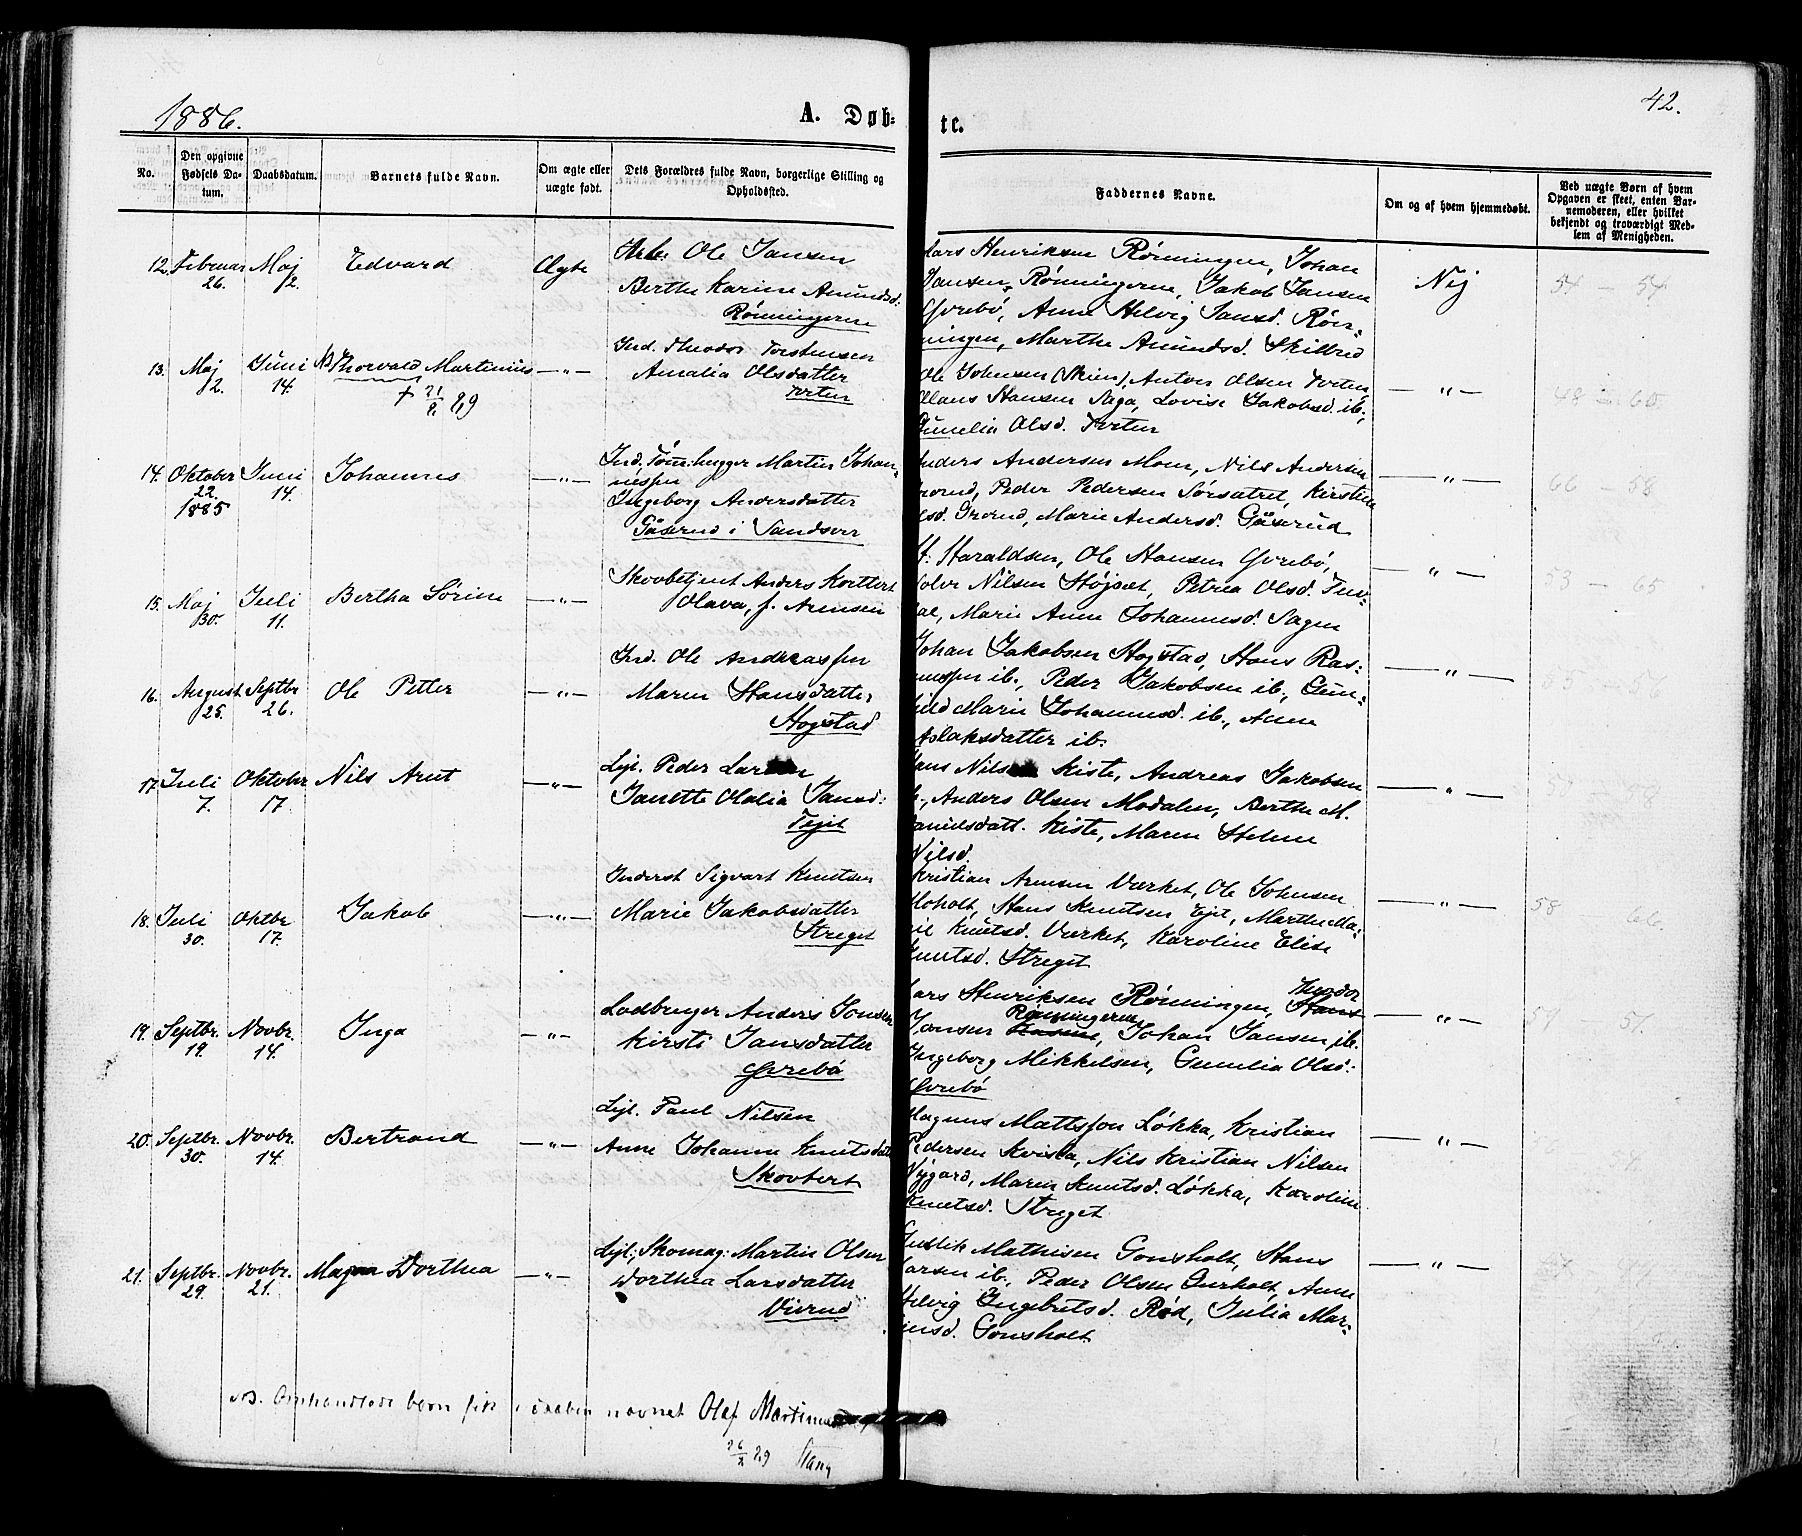 1886.
A. Døb-
te.
42.
No.
Den opgivne Fødsels Da-tum.
Daabsdatum.
Barnets fulde Navn.
Om ægte eller uægte født.
Dets Forældres fulde Navn, borgerlige Stilling og Opholdssted.
Faddernes Navne.
Om og af hvem hjemmedøbt.
Ved uægte Børn af hvem Opgaven er skeet, enten Bar-nemoderen, eller hvilket bekjendt og troværdigt Med-lem af Menigheden.
12. Februar 26. Maj 2. Edvard Ægte
Ole Jansen
Berthe Karine Amundsd:
Rønningerne
Lars Henriksen Rønningen, Johan
Jansen, Rønningerne, Jakob Jansen
Gvrebø, Anne Helvig Jansd. Røn-
ningen, Marthe Amundsd. Skilbred
Nej
54 — 54
13. Maj 2. Juni 14. NB Thorvald Martinius —"—
+ 21/2 89
Ind. Theodor Torstensen
Amalia Olsdatter
Tveten
Ole Johnsen (Skien), Anton Olsen Tveten
Klaus Hansen Saga, Lovise Jakobsd. ib.,
Gunelia Olsd. Tveten
—"—
14. Oktober 22. 1885 Juni 14. Johannes —"—
Ind. Tømhugger Martin Johan-
nessen
Ingeborg Andersdatter
Gåserud i Sandsver
Anders Andersen Moen, Nils Andersen
Grorud, Peder Pedersen Sørsætret, Kirstine
Olsd. Grorud, Marie Andersd. Gåserud
—"—
66 — 58
15. Maj 30. Juli 11. Bertha Sørine —"—
Skovbetjent Anders Kortterb
Olava, f. Arnesen
H. Haraldsen, Ole Hansen Gvrebø,
Nilsen Højset, Petrea Olsd.
Marie Anne Johannesd. Sagen
—"—
53 — 65
16. August 25. Septbr 26. Ole Petter —"—
Ind. Ole Andreassen
Maren Hansdatter
Hogstad
Johan Jakobsen Hogstad, Hans Ras-
mussen ib., Peder Jakobsen ib., Gun-
hild Marie Johannesd. ib., Anne
Aslaksdatter ib.
—"—
17. Juli 7. Oktobr 17. Nils Arnt —"—
Lejl. Peder Larsen
Janette Olalia Jansd:
Tejit
Hans Nilsen Kiste, Andreas Jakobsen
ib., Anders Olsen Modalen, Berthe M.
Danielsdatt. Kiste, Maren Helene
Nilsd.
—"—
18. Juli 30. Oktbr 17. Jakob —"—
Inderst Sigvart Knutsen
Marie Jakobsdatter
Streget
Kristian Arnesen Værket, Ole Johnsen
Moholt, Hans Knutsen Ejet, Marthe Ma-
rie Knutsd. Værket, Karoline Elise
Knutsd. Streget
—"—
58 66.
19. Septbr. 19. Novbr. 14. Inga —"—
Ladbruger Anders Jonsen
Kirsti Jansdatter
Gvrebø
Lars Henriksen Rønningen, Hans Theodor
Jansen Rønningerne, Johan Jansen, ib.
Ingeborg Mikkelsen, Gunelia Olsd.
Gvrebø
—"—
20. Septbr. 30. Novbr. 14. Bertrand —"—
Lejl. Paul Nilsen
Anne Johanne Knutsdatt
Skovbert
Magnus Mattsson Løkka, Kristian
Pedersen Kviska, Nils Kristian Nilsen
Nygard, Maren Knutsd. Løkka, Karoline
Knutsd. Streget
—"—
21. Septbr. 29. Novbr. 21. Magna Dorthea —"—
Lejl., Skomag: Martin Olsen
Dorthea Larsdatter
Vierud
Mathisen Gonsholt, Hans
Larsen ib., Peder Olsen Gurholt, Anne
Helvig Ingebretsd. Rød, Julia Mar-
tinsd. Gonsholt
—"—
NB. Omhandlede barn fik i daaben navnet Olaf Martinius
26/2 89 Stang